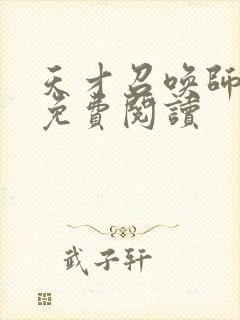 天才召喚師
免費閱讀
武子轩